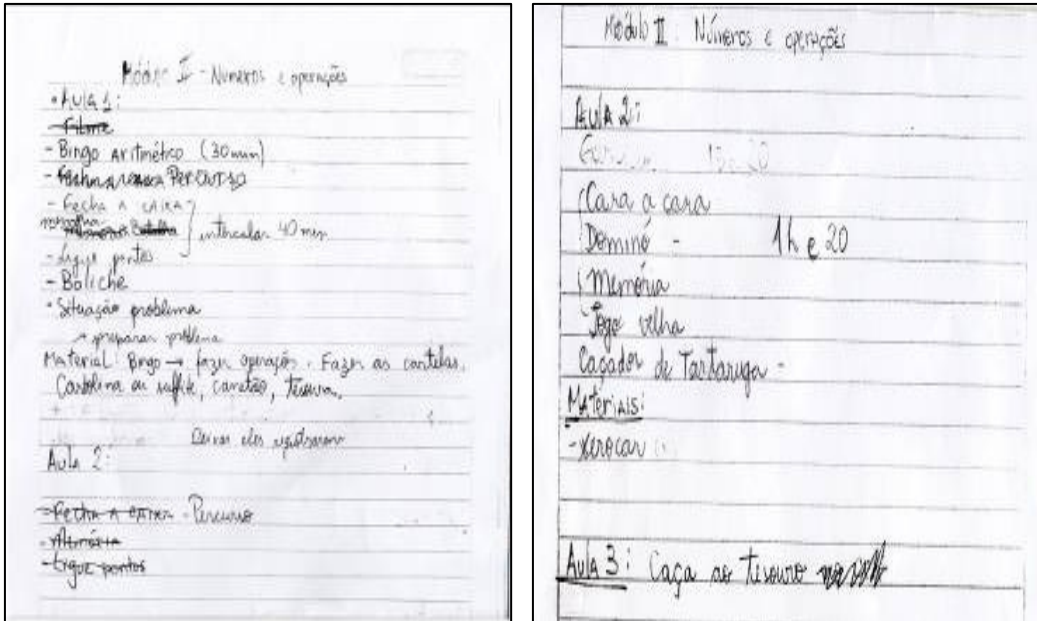 Módulo II - Números e operações
• Aula 1:
- Filme
- Bingo aritmético (30 min)
- PERCURSO
- Fecha A CAIXA
intercalar 40 min
- Ligue pontos
- Boliche
• Situação problema
→ preparar problema
Material: Bingo → fazer operações. Fazer as cartelas.
Cartolina ou sulfite, canetão, tesoura.
Deixar eles registrarem
Aula 2:
- Fecha A CAIXA - Percurso
- Memória
- Ligue pontos
Módulo II: Números e operações
Aula 2:
Cara a cara
Dominó - 1h e 20
Memória
Jogo velha
Caçador de Tartaruga -
Materiais:
- xerocar
Aula 3: Caça ao tesouro